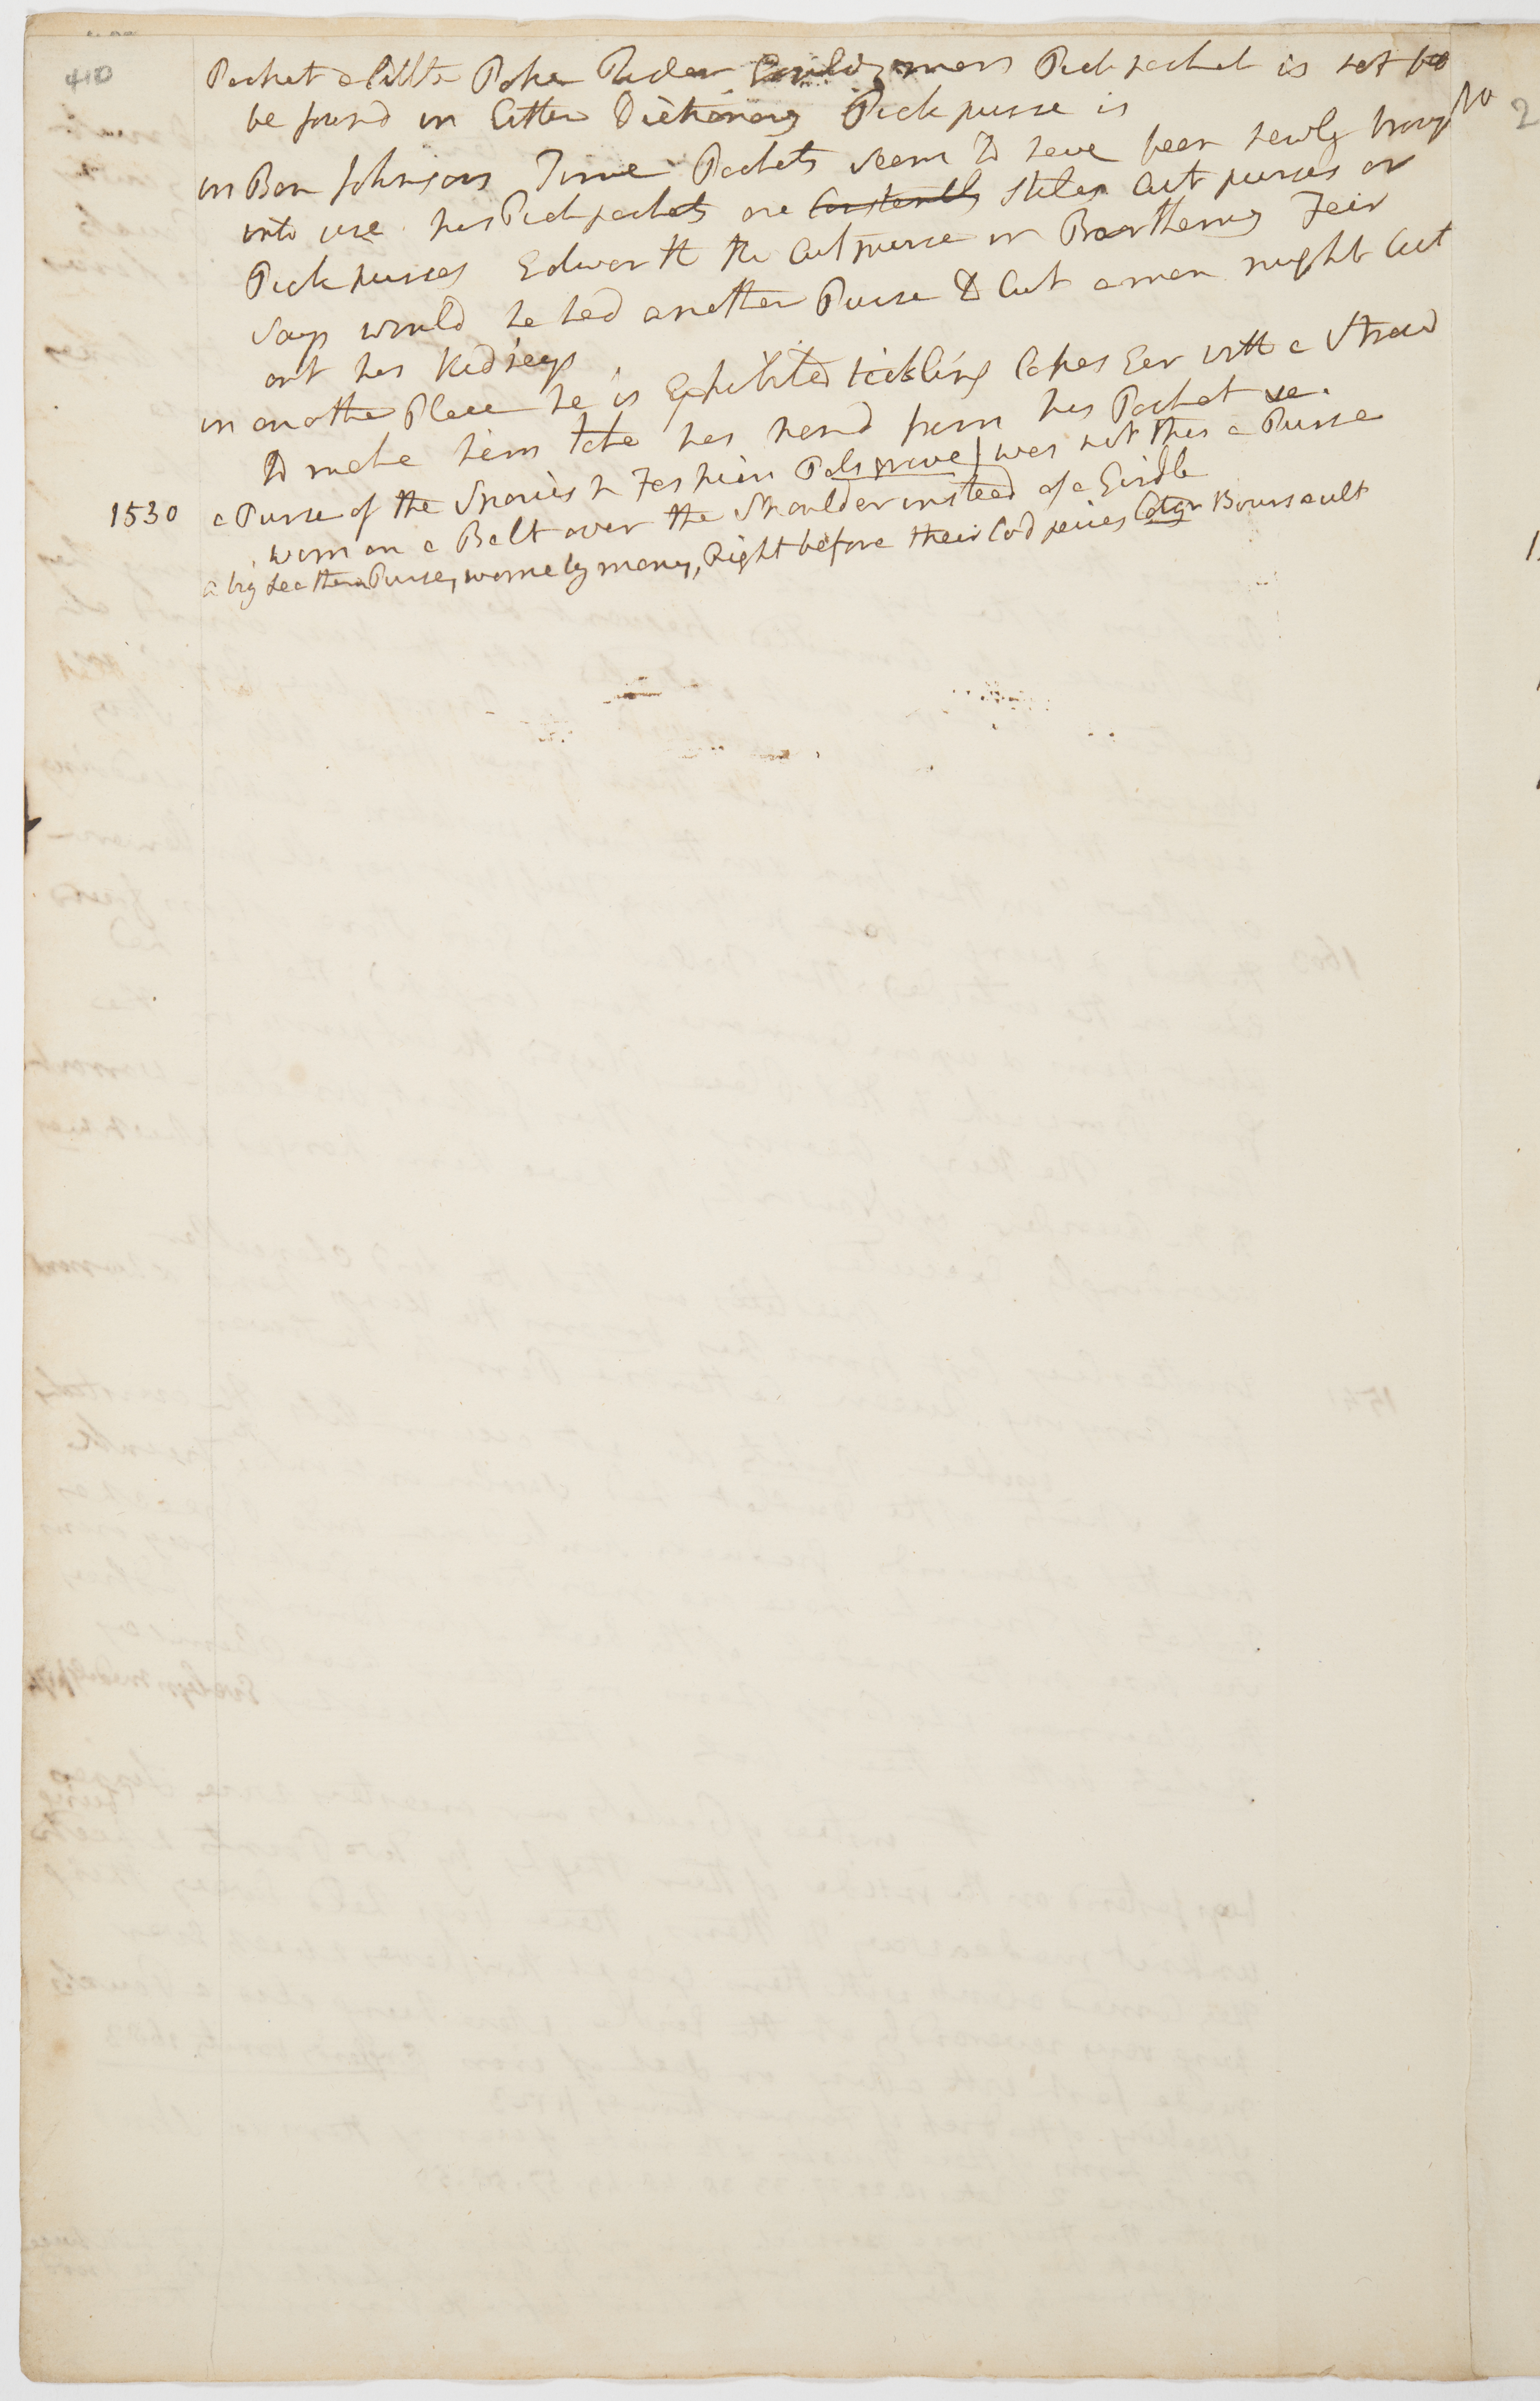 410
Pocket a little Poke Rider Gouldymans Pick pocket is not to
be found in Littletons Dictionary Pick purse is
in Ben Johnsons Time Pockets seem to have been newly brought
into use his Pick pockets are Constantly stiled Cut purses or
Pick purses Edworth the Cut purse in Barthemy Fair
says would he had another Purse to Cut a man might Cut
out his Kidneys
in another Place he is Exhibited tickling Cokes Ear with a Straw
to make him take his hand from his Pocket
1530 a Purse of the Spanish Fashion Palsgrave / was not this a Purse
worn on a Belt over the Shoulder instead of a Girdle
a big Leathern Purse, worne by many, Right before their Cod peices Cotgr Boursault
2